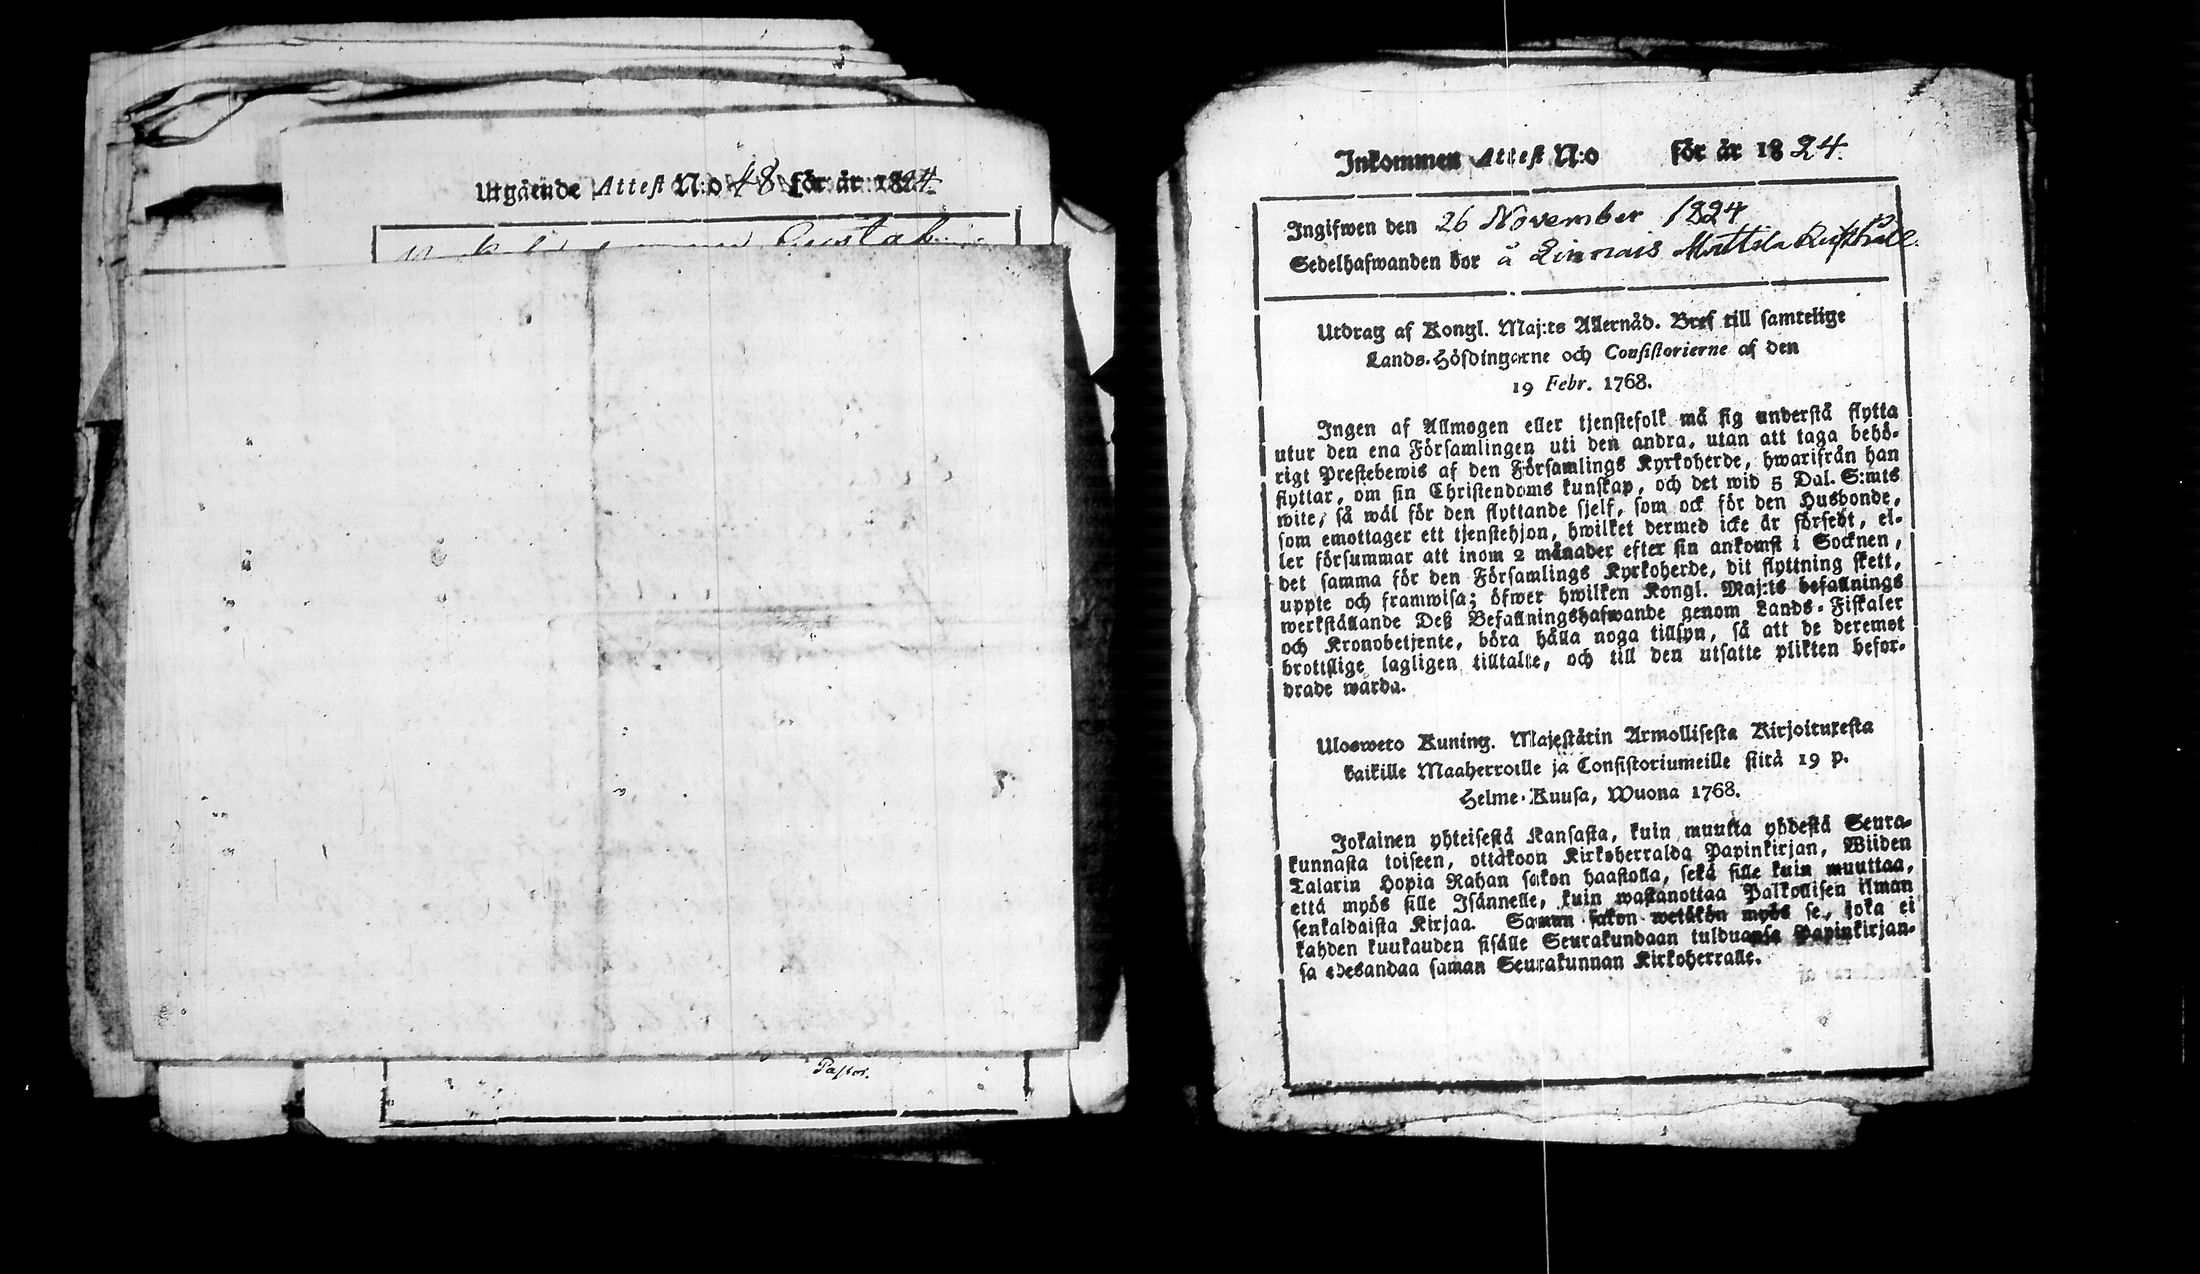 Utgående Attest N:o 48 för år 1824.
Gustaf
Pastor.
Inkommen Attest N:o för år 1824.
Ingifwen den 26 November 1824
Sedelhafwanden bor å Linnais Mattila Rusthåll.
Utdrag af Kongl. Maj:ts Allernåd. Bref till samtelige
Lands-Höfdingarne och Consistorierne af den
19 Febr. 1768.
Ingen af Allmogen eller tjenstefolk må sig understå flytta
utur den ena Församlingen uti den andra, utan att taga behö-
rigt Prestebewis af den Församlings Kyrkoherde, hwarifrån han
flyttar, om sin Christendoms kunskap, och det wid 5 Dal. S:mts
wite, så wäl för den flyttande sjelf, som ock för den Husbonde,
som emottager ett tjenstehjon, hwilket dermed icke är försedt, el-
ler försummar att inom 2 månader efter sin ankomst i Socknen,
det samma för den Församlings Kyrkoherde, dit flyttning skett,
uppte och framwisa; öfwer hwilken Kongl. Maj:ts befallnings
werkställande Deß Befallningshafwande genom Lands-Fiskaler
och Kronobetjente, böra hålla noga tillsyn, så att de deremot
brottslige lagligen tilltalte, och till den utsatte plikten befor-
drade warda.
Ulosweto Kuning. Majestätin Armollisesta Kirjoituxesta
kaikille Maaherroille ja Consistoriumeille siitä 19 p.
Helme-Kuusa, Wuona 1768.
Jokainen yhteisestä Kansasta, kuin muutta yhdestä Seura-
kunnasta toiseen, ottakoon Kirkoherralda Papinkirjan, Wiiden
Talarin Hopia Rahan sakon haastolla, sekä sille kuin muuttaa,
että myös sille Isännelle, kuin wastanottaa Palkollisen ilman
senkaldaista Kirjaa. Saman sakon wetäkön myös se, joka ei
kahden kuukauden sisälle Seurakundaan tulduansa Papinkirjan-
sa edesandaa saman Seurakunnan Kirkoherralle.